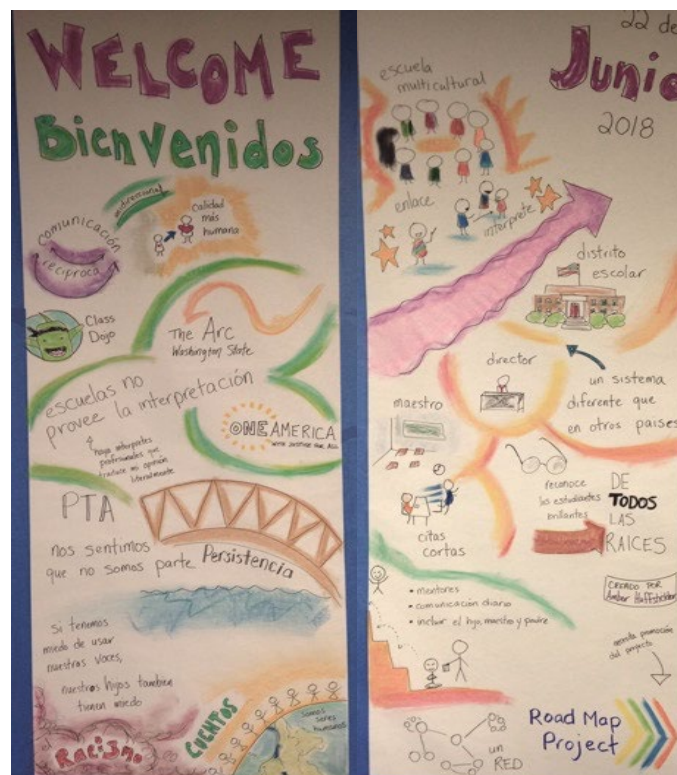 WELCOME
Bienvenidos
comunicación
recíproca
calidad
más
humana
Class
Dojo
The Arc
Washington State
escuelas no
provee la interpretación
ONEAMERICA
WITH JUSTICE FOR ALL
haya interpretes
profesionales que
traduce mi opinión
literalmente
PTA
nos sentimos
que no somos parte
Persistencia
Si tenemos
miedo de usar
nuestras voces,
nuestros hijos tambien
tienen miedo
Racismo
CUENTOS
somos
seres
humanos
22 de
Junio
2018
escuela
multicultural
enlace
interprete
distrito
escolar
director
un sistema
diferente que
en otros paises
maestro
reconoce
los estudiantes
brillantes
DE
TODOS
LAS
RAICES
citas
cortas
CREADO POR
Amber
• mentores
• comunicación diario
• incluir el hijo, maestro y padre
promoción
del proyecto
un
RED
Road Map
Project